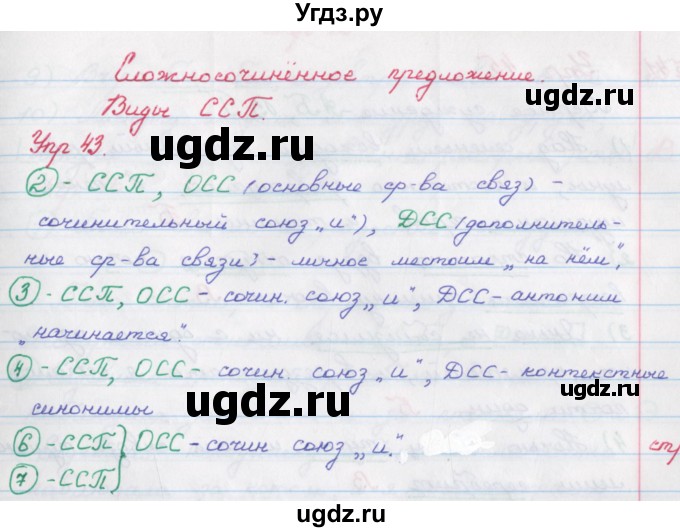 Угдз.ру
Сложносочинённое предложение.
Виды ССП.
ugdz.ru
Упр 43.
② - ССП, ОСС (основные ср-ва связ) -
сочинительный союз „и"), ДСС (дополнитель-
ные ср-ва связи) - личное местоим „на нём",
③ - ССП, ОСС - сочин. союз „и", ДСС - антоним
„начинается".
ugdz.ru
④ - ССП, ОСС - сочин. союз „и", ДСС - контекстные
синонимы
ugdz.ru
⑥ - ССП} ОСС - сочин союз „и". стр
⑦ - ССП
ugdz.ru